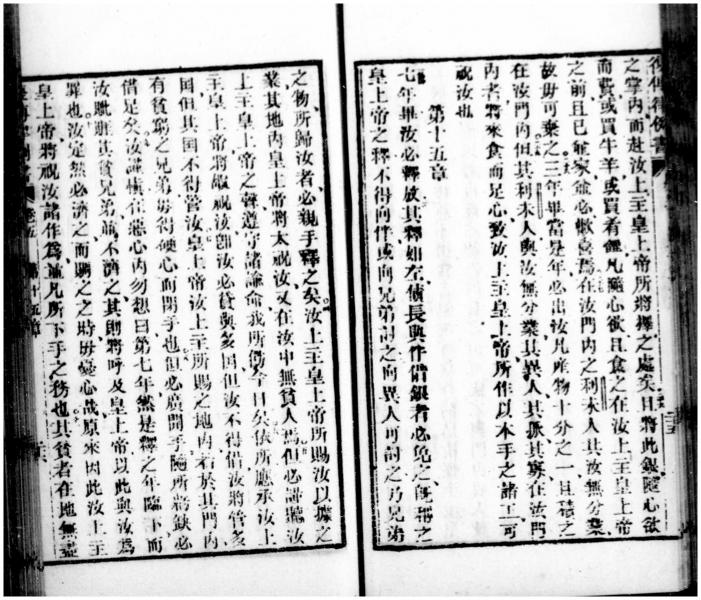 之掌內、而赴汝上主皇上帝所將擇之處矣且將此銀隨心欲
而費、或買牛羊、或買肴饌凡隨心欲、且食之在汝上主皇上帝
之前、且己並家等必歡喜焉在汝門內之利未人其汝無分業、
故毋可棄之三年畢當是年必出汝凡產物十分之一且積之
在汝門內但其利未人與汝無分業、其異人、其孤、其寡在汝門
內者、將來食而足心、致汝上主皇上帝、所作以本手之諸工、可
祝汝也
第十五章
七年畢汝必釋放其釋如左債長與伴借銀者必免之既稱之
皇上帝之釋不得向伴或向兄弟討之向異人可討之乃兄弟
之物、所歸汝者、必親手釋之矣汝上主皇上帝所賜汝以據之
業其地內皇上帝將太祝汝、又在汝中無貧人焉、但必謹聽汝
上主皇上帝之聲遵守諸諭命我所傳今日矣依所應承汝上
主皇上帝將祝汝、卽汝必貸與多國但汝不得借汝將管多
國但其国不得管汝皇上帝汝上主所賜之地內若於其門內
有貧窮之兄弟毋得硬心而閉手也但必廣開手隨所將缺必
借足矣汝謹慎在惡心內勿想曰第七年然是釋之年臨卞而
汝眦睚其貧兄弟、並不濟之其則將呼及皇上帝以此與汝爲
罪也汝定然必濟之而賜之之時毋憂心哉原來因此汝上主
皇上帝將祝汝諸作爲、並凡所下手之務也其貧者在地無盡